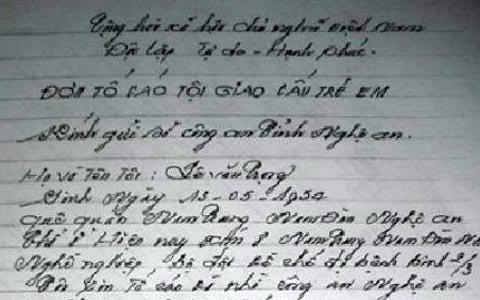 Cộng hòa xã hội chủ nghĩa Việt Nam
Độc lập Tự do - Hạnh phúc.
ĐƠN TỐ CÁO TỘI GIAO CẤU TRẺ EM
Kính gửi sở công an Tỉnh Nghệ an.
Họ và Tên Tôi : Lê văn
Sinh Ngày 13 - 05 - 1954
quê quán Nam Trung Nam Đàn Nghệ an
Chỗ ở Hiện nay xóm 8 Nam Trung Nam Đàn
Nghề nghiệp Bộ đội chế độ bệnh binh 2/3
Tôi xin Tố cáo công an Nghệ an